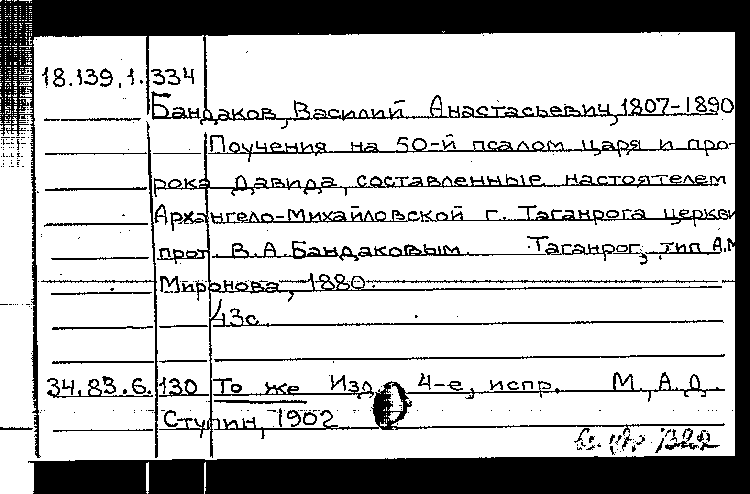 18.139.1.334
Бандаков, Василий Анастасьевич, 1807-1890
Поучения на 50-й псалом царя и про-
рока Давида, составленные настоятелем
Архангело-Михайловской г. Таганрога церкви
прот. В.А. Бандаковым. Таганрог, тип А.М
Миронова, 1880.
43с.
34.83.6.130 То же Изд. 4-е, испр. М., А.Д.
Ступин, 1902